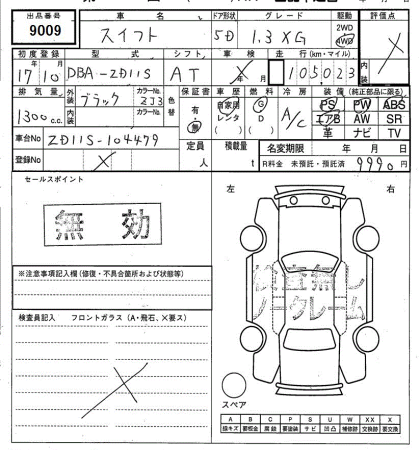 出品番号 車名 ドア形状 グレード 駆動 評価点
9009 スイフト 5D 1.3 XG 2WD 4WD
初度登録 型式 シフト 車検 走行(km・マイル) 内装
17年10月 DBA-ZD11S AT 年 月 105,023
排気量 外装 カラーNo. 色替 保証書 車歴 燃料 冷房 装備(純正部品に限る)
1300c.c. ブラック ZJ3 有・無 自家用 レンタ ( ) G D ( ) A/C PS PW ABS
内装 カラーNo. エアB AW SR
革 ナビ TV
車台No ZD11S-104479 定員 人 積載量 t 名変期限 年 月 日
登録No R料金 未預託・預託済 9990円
セールスポイント 左 右
無効
検査無し
ノークレーム
※注意事項記入欄(修復・不具合箇所および状態等)
検査員記入 フロントガラス(A・飛石、×要ス)
スペア
A B C P S U W XX X
線キズ 要板金 腐蝕 要塗装 サビ 凹凸 補修跡 交換跡 要交換